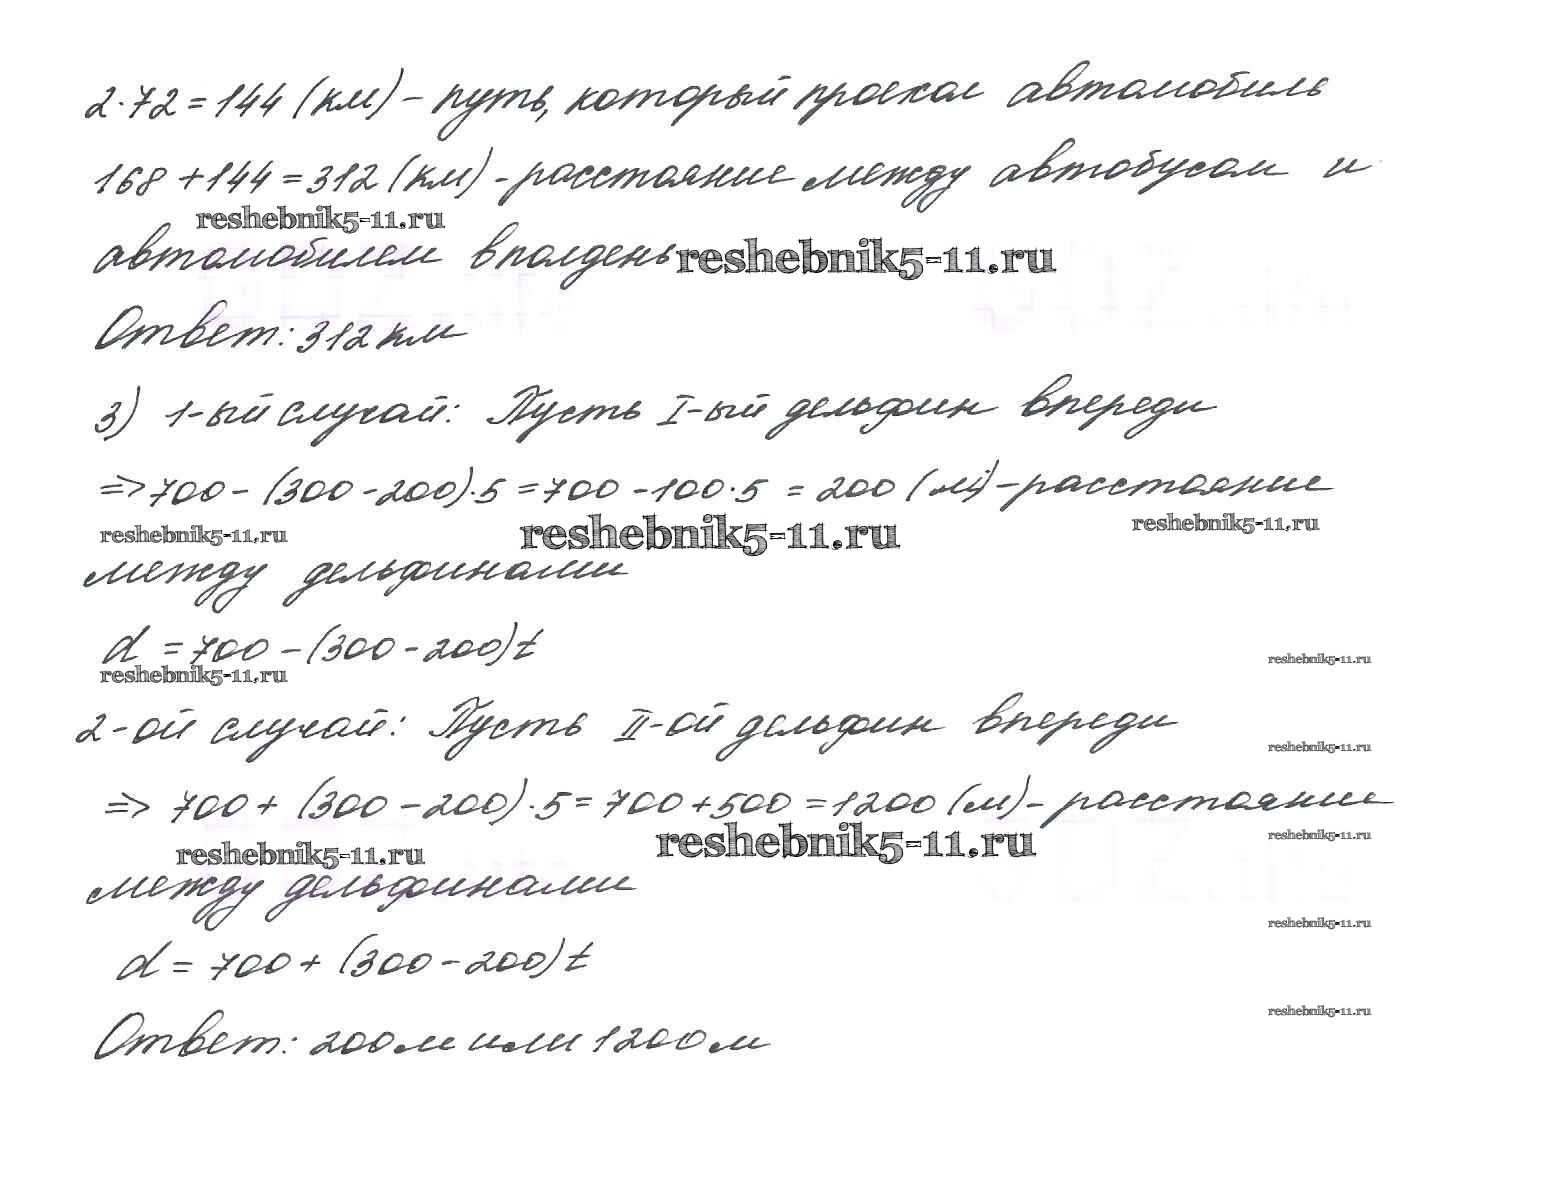 2·72=144 (км) – путь, который проехал автомобиль
168+144=312 (км) - расстояние между автобусом и
reshebnik5-11.ru
автомобилем в полдень reshebnik5-11.ru
Ответ: 312 км
3) 1-ый случай: Пусть I-ый дельфин впереди
=> 700 – (300 - 200)·5 = 700 - 100·5 = 200 (м) – расстояние
reshebnik5-11.ru reshebnik5-11.ru reshebnik5-11.ru
между дельфинами
d = 700 – (300 - 200)t
reshebnik5-11.ru reshebnik5-11.ru
2-ой случай: Пусть II-ой дельфин впереди
reshebnik5-11.ru
=> 700 + (300 – 200)·5 = 700 + 500 = 1200 (м) - расстояние
reshebnik5-11.ru reshebnik5-11.ru reshebnik5-11.ru
между дельфинами
reshebnik5-11.ru
d = 700 + (300 - 200)t
reshebnik5-11.ru
Ответ: 200 м или 1200 м